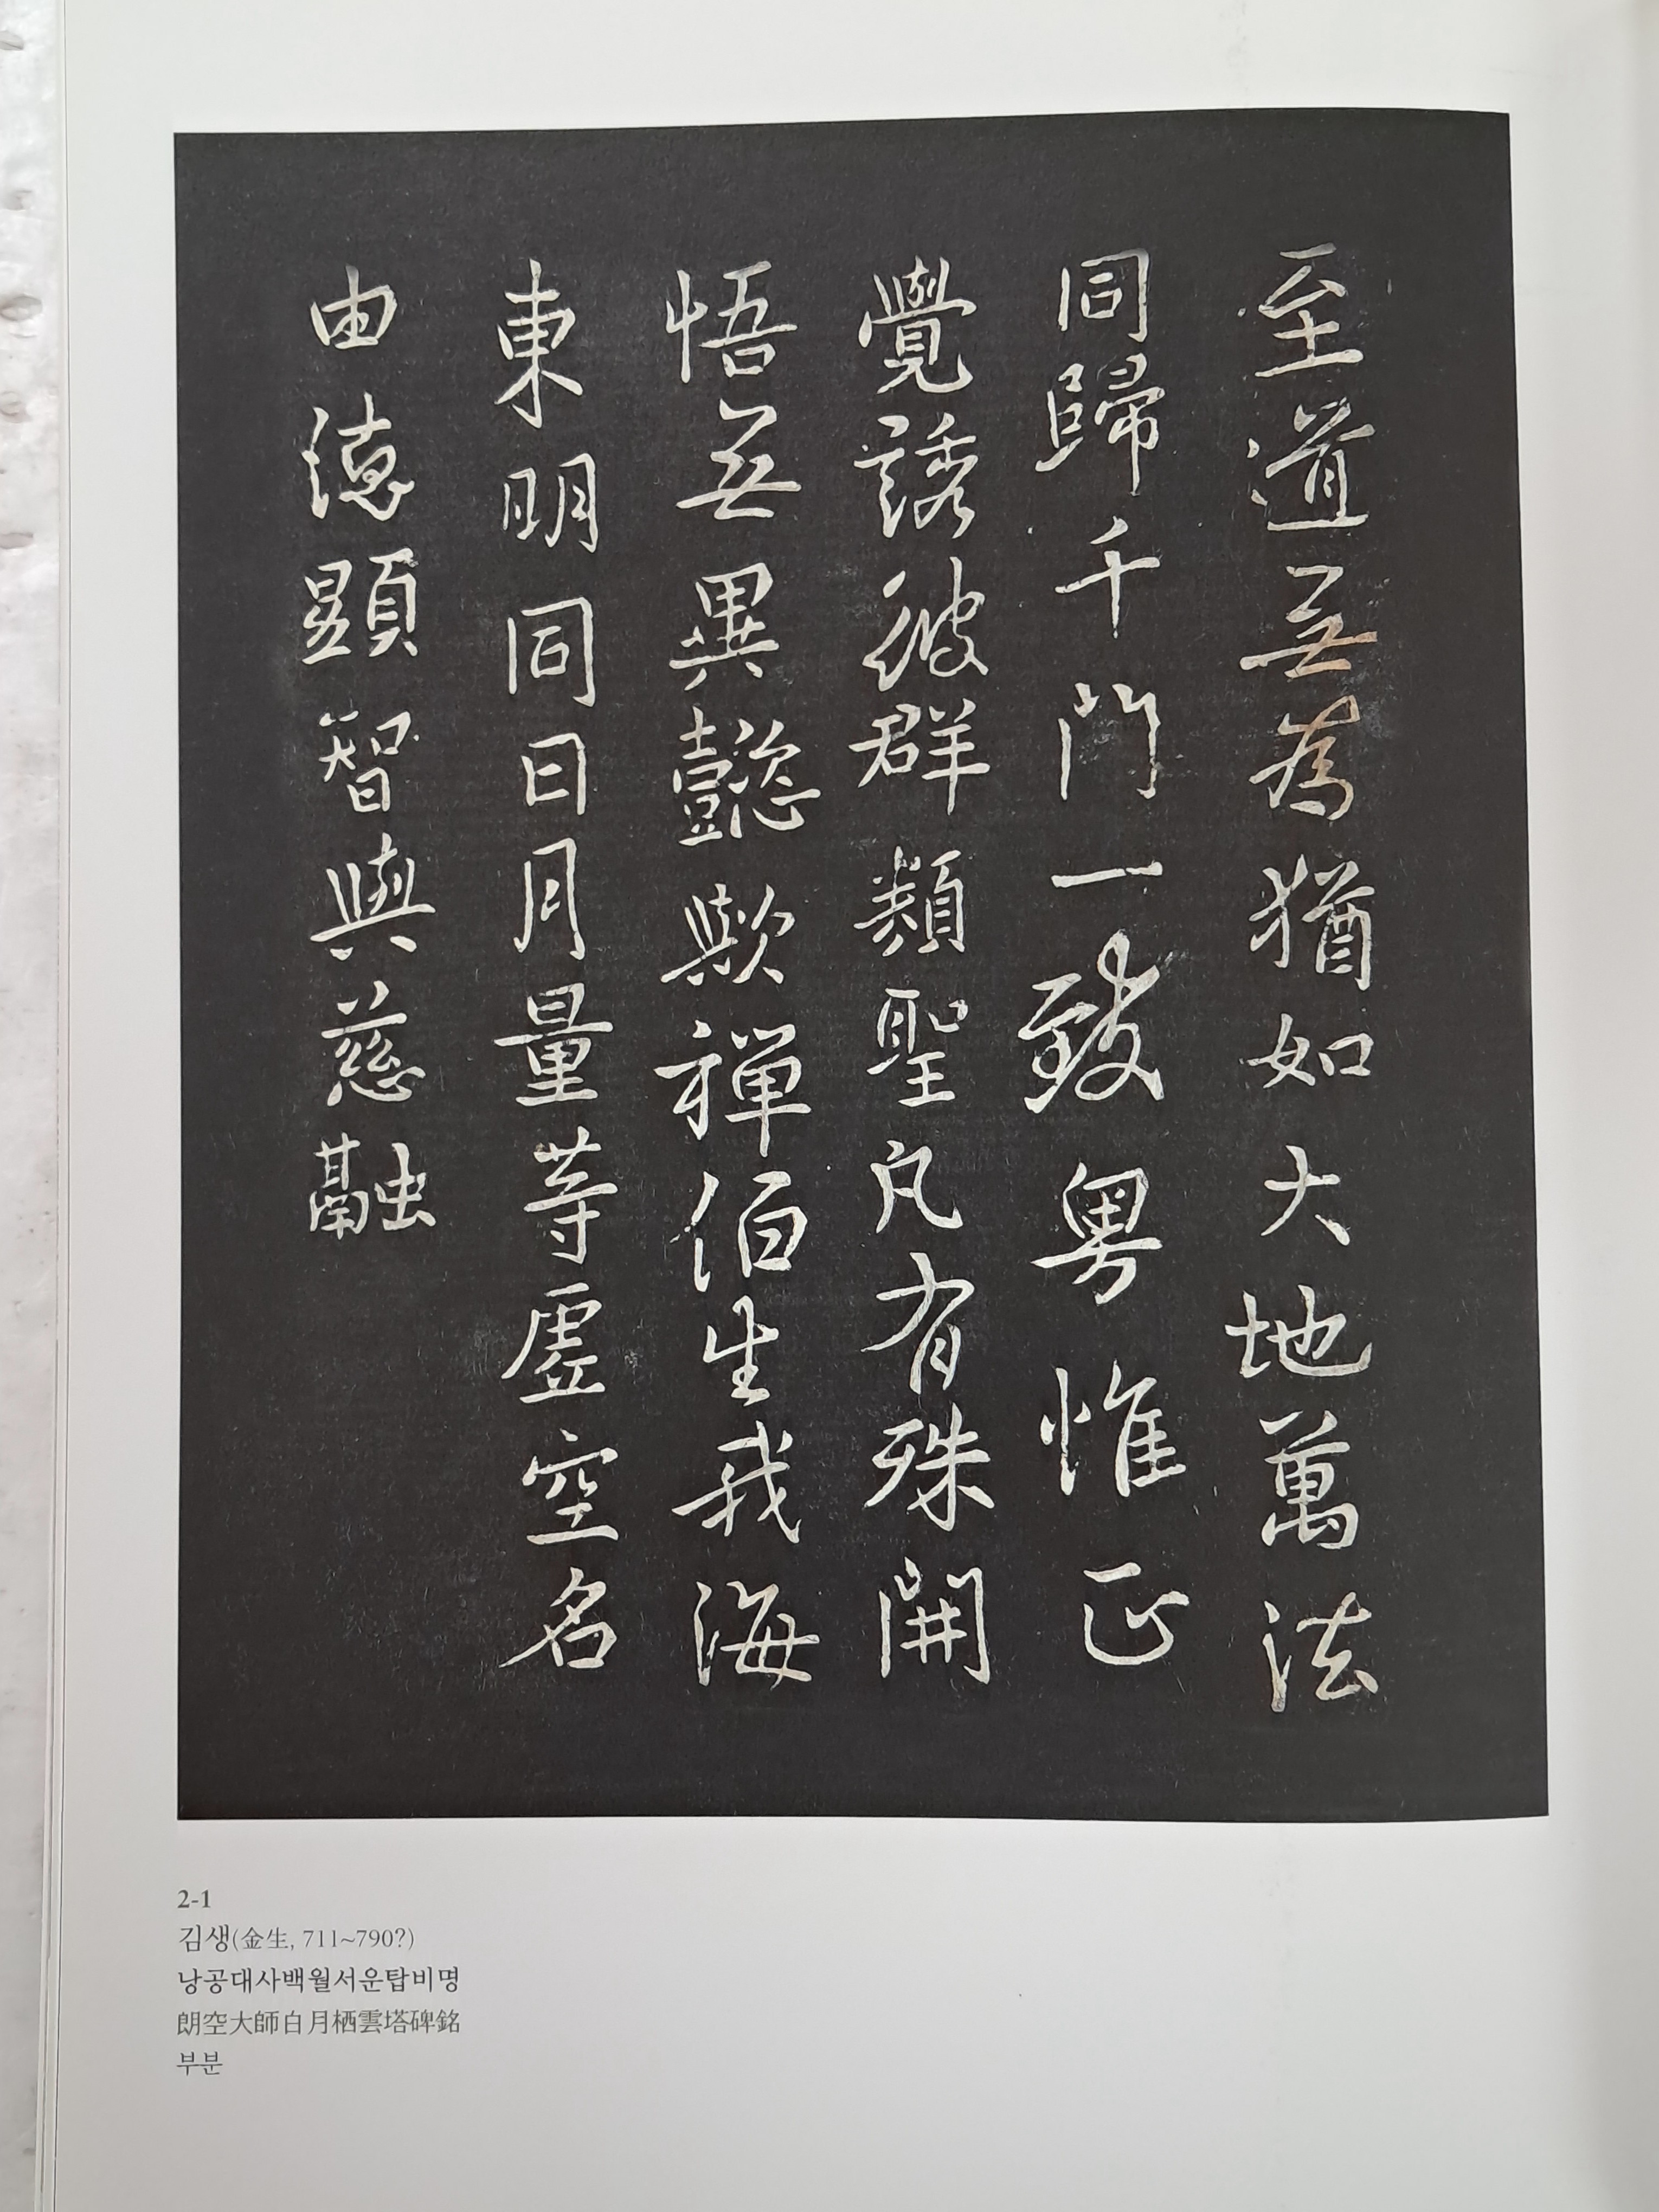 至道無為猶如大地萬法
同歸千門一致粵惟正
覺誘彼群類聖凡有殊開
悟無異懿歟禪伯生我海
東明同日月量等虛空名
由德顯智與慈融
2-1
김생(金生, 711~790?)
낭공대사백월서운탑비명
朗空大師白月栖雲塔碑銘
부분